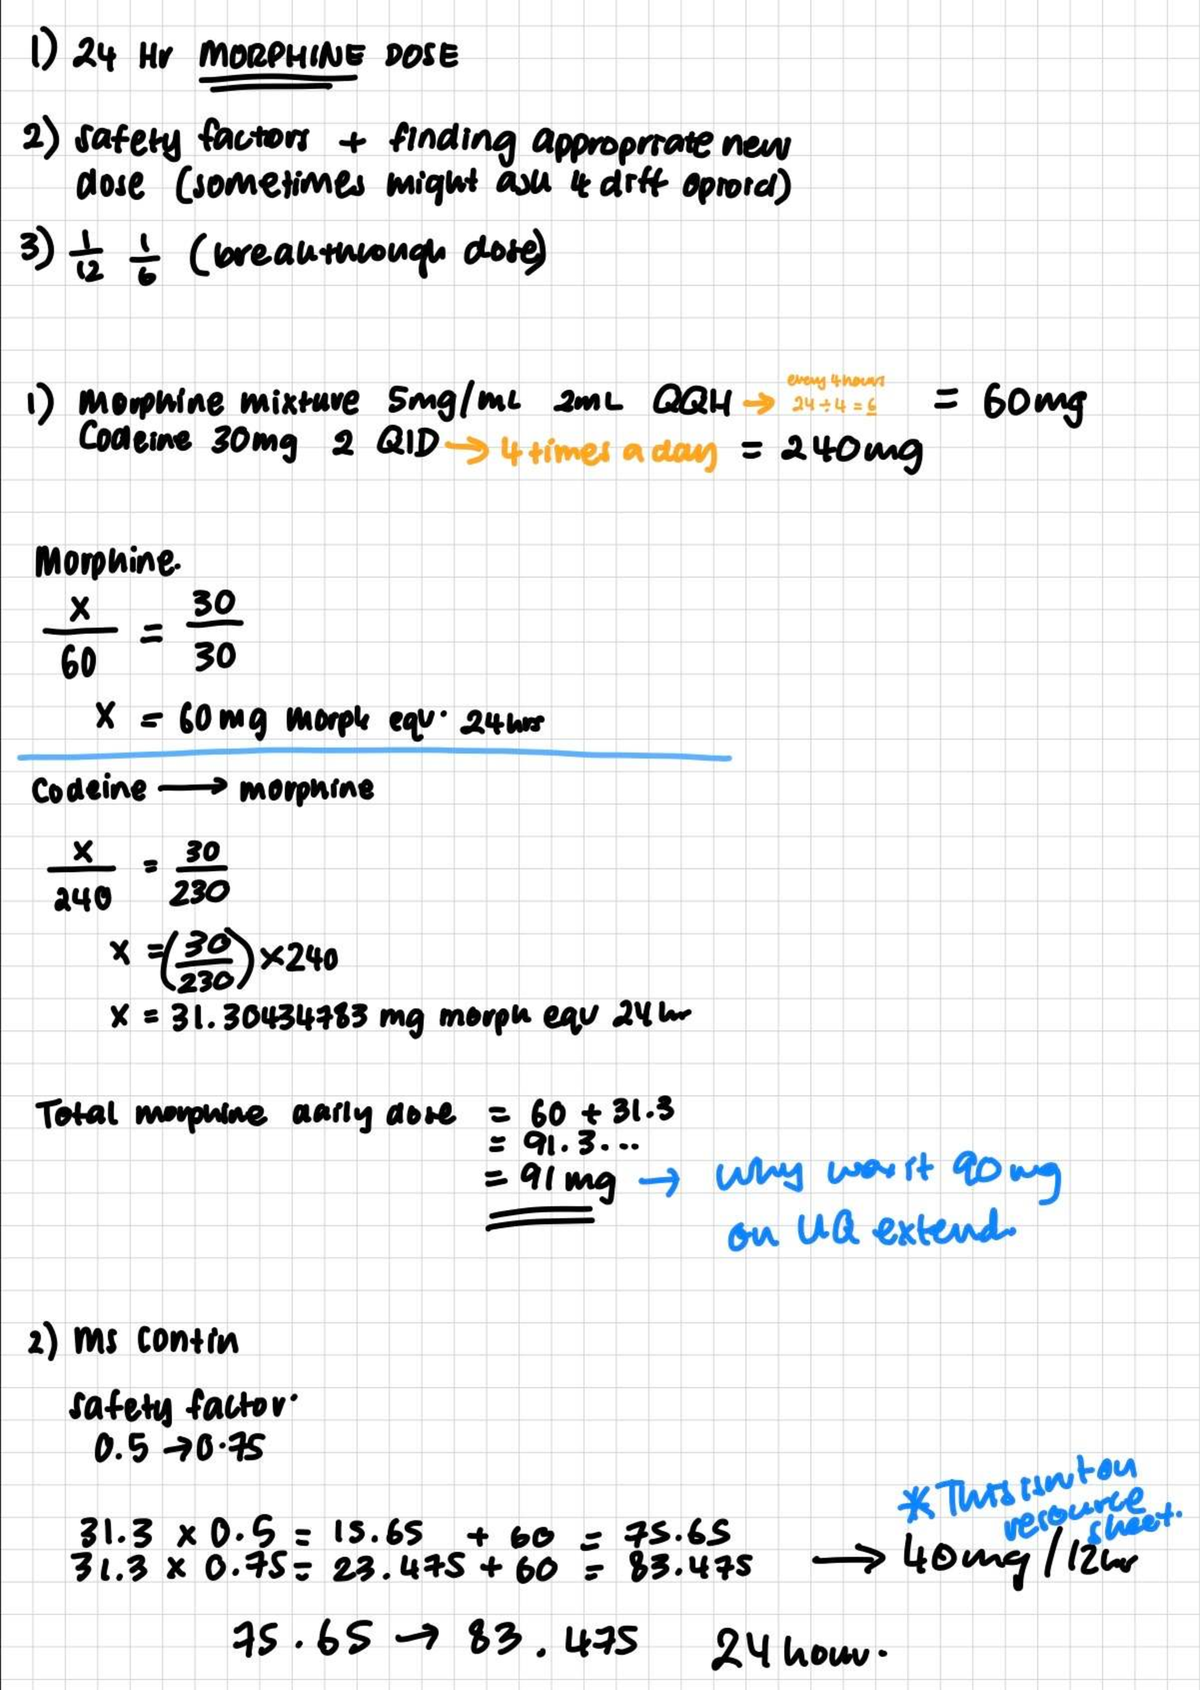 1) 24 Hr MORPHINE DOSE
2) safety factors + finding appropriate new
dose (sometimes might ask 4 diff opioid)
3) 1/12 1/6 (breakthrough dose)
every 4 hours
1) Morphine mixture 5mg/mL 2mL QQH → 24÷4=6 = 60mg
Codeine 30mg 2 QID → 4 times a day = 240mg
Morphine.
x/60 = 30/30
x = 60mg morph equ. 24hrs
Codeine → morphine
x/240 = 30/230
x = (30/230) × 240
x = 31.30434783 mg morph equ 24hr
Total morphine daily dose = 60 + 31.3
= 91.3...
= 91mg → why was it 90mg
on UQ extend.
2) MS Contin
safety factor.
0.5 → 0.75
* This isnt on
resource
sheet.
31.3 × 0.5 = 15.65 + 60 = 75.65
31.3 × 0.75 = 23.475 + 60 = 83.475 → 40mg/12hr
75.65 → 83.475 24 hour.